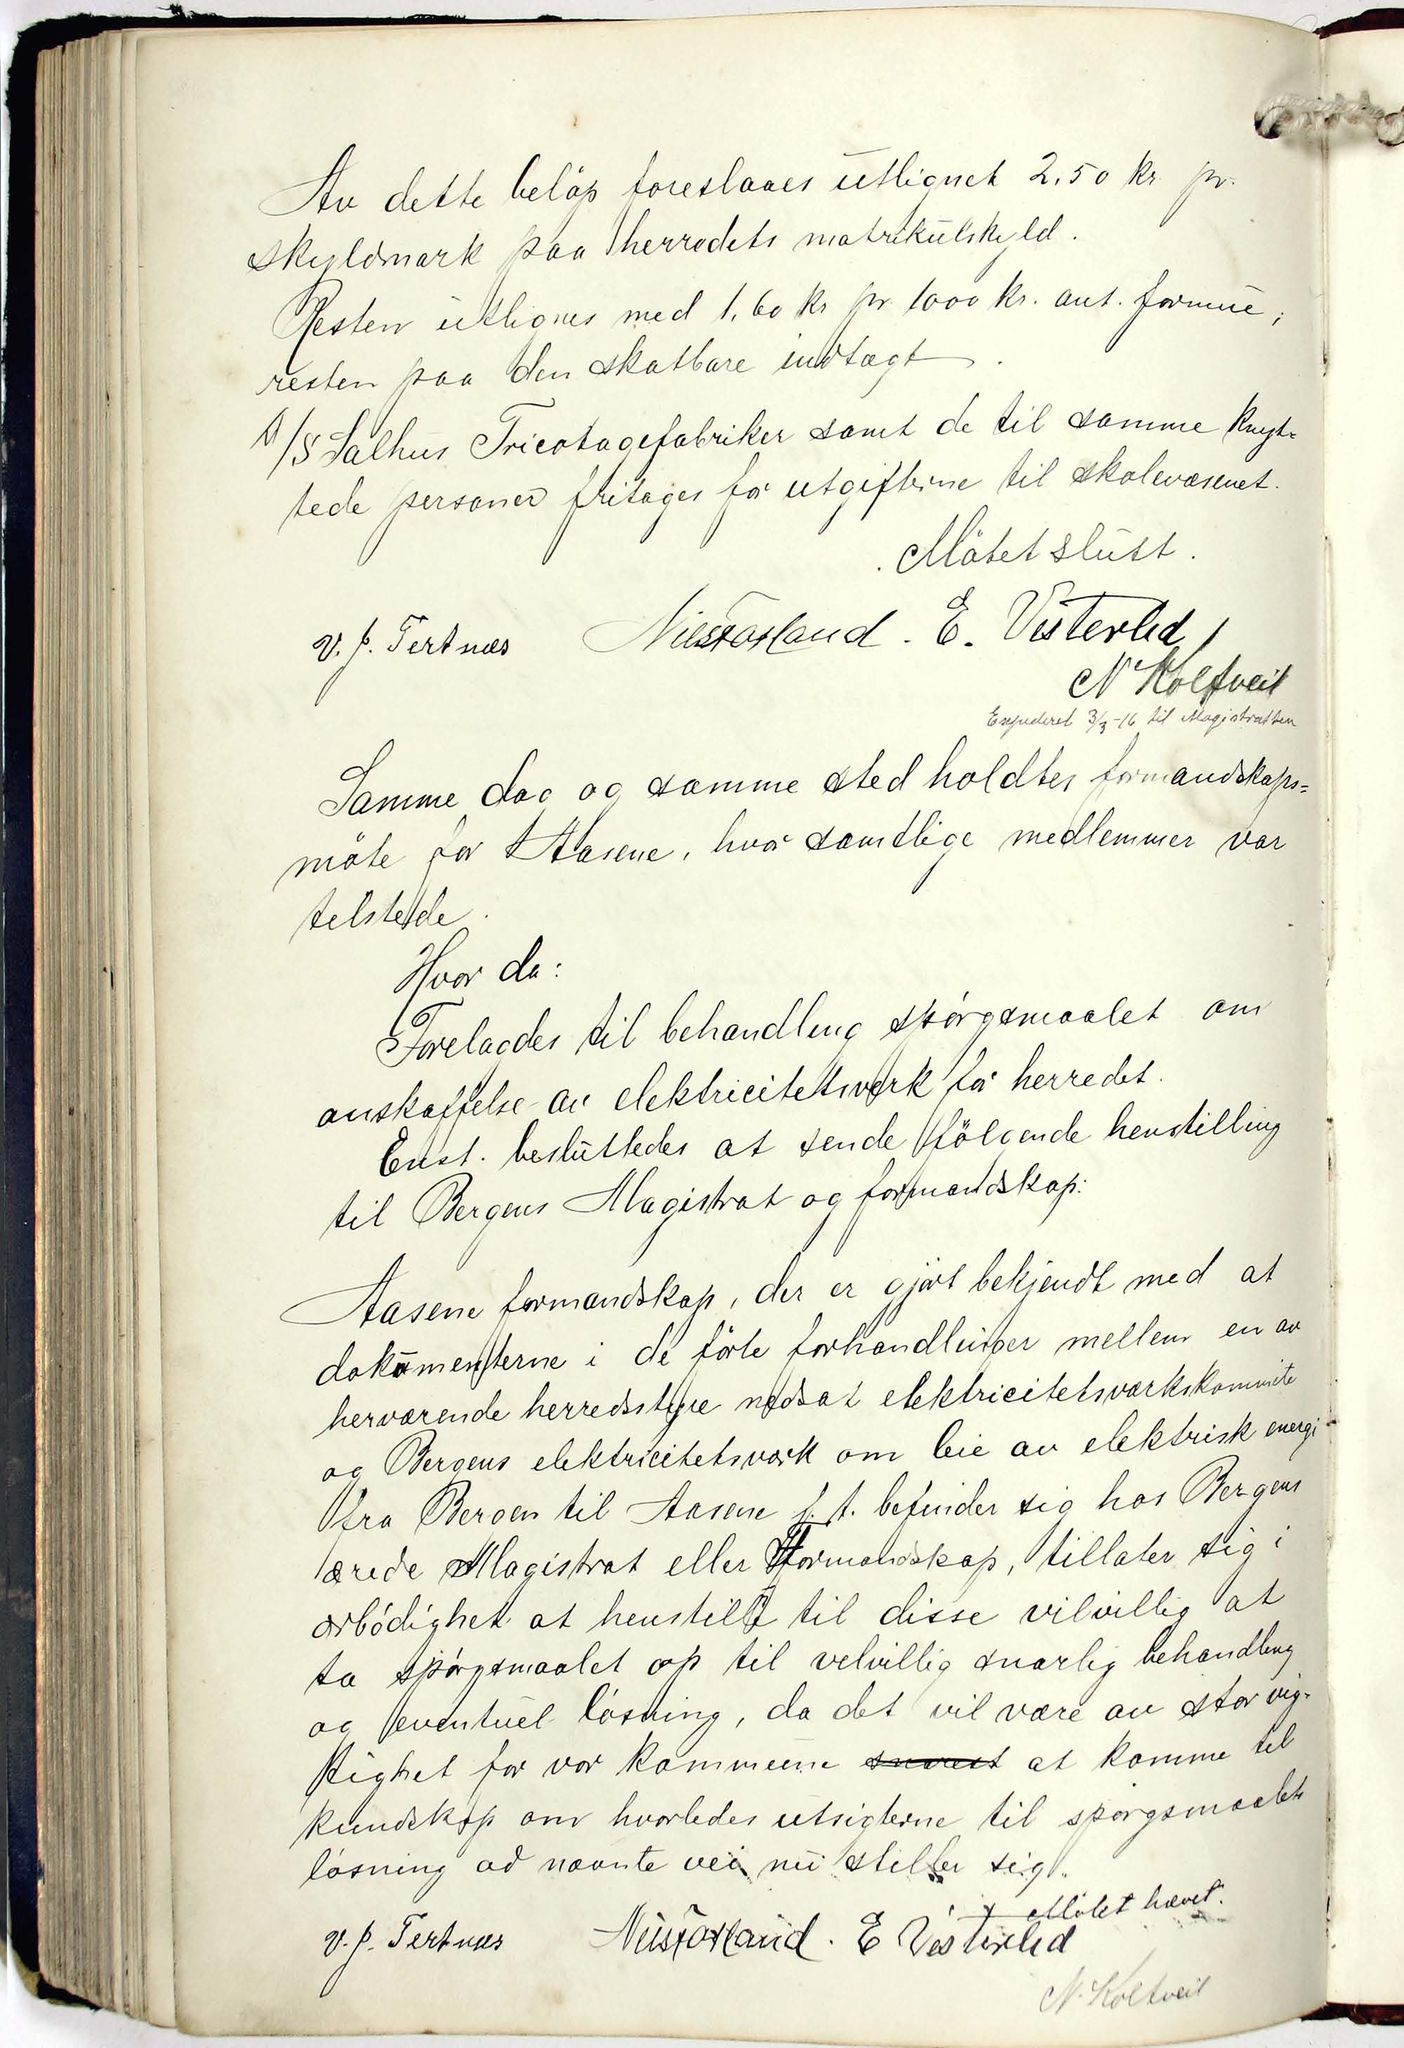 Av dette beløp foreslaaes utlignet 2.50 kr pr.
skyldmark paa herredets matrikulskyld.
Resten utlignes med 1.60 kr pr 1000 kr. ant. formue,
resten paa den skatbare indtægt.
A/S Salhus Tricotagefabriker samt de til samme knyt-
tede personer fritages for utgifterne til skolevæsenet.
Møtet slutt.
V. J. Tertnæs Nils Forland. E. Vesterlid
N Koltveit
Expederet 3/3-16 til Magistratten
Samme dag og samme sted holdtes formandskaps=
møte for Aasene, hvor samtlige medlemmer var
telstede.
Hvor da:
Forelagdes til behandling spørgsmaalet om
anskaffelse av elektricitetsverk for herredet.
Enst. besluttedes at sende følgende henstilling
til Bergens Magistrat og formandskap:
Aasene formandskap, der er gjort bekjendt med at
dokumenterne i de førte forhandlinger mellem en av
herværende herredsstyre nedsat elektricitetsværkskommite
og Bergens elektricitetsværk om leie av elektrisk energi
fra Bergen til Aasene f. t. befinder sig hos Bergens
ærede Magistrat eller Formandskap, tillater sig i
ærbødighet at henstille til disse vilvillig at
ta spørgsmaalet op til velvillig snarlig behandling
og eventuel løsning, da det vil være av stor vig-
tighet for vor kommune snarest at komme til
kundskap om hvorledes utsigterne til spørgsmaalets
løsning ad nævnte vei nu stiller sig.
Møtet hævet.
V. J. Tertnæs Nils Forland. E Vesterlid
N. Koltveit